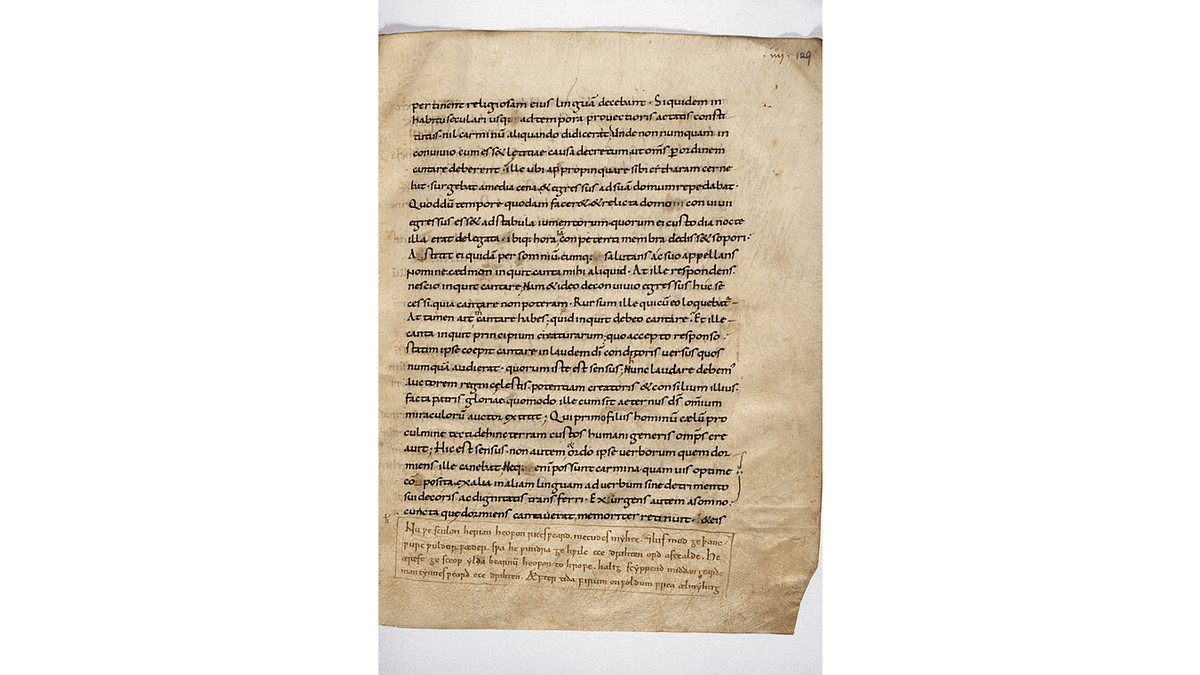 ·iiii· 129
pertinent religiosam eius linguā decebant· Siquidem in
habitu seculari usq; ad tempora prouectioris aetatis consti
tutus· nil carminū aliquando didicerat; Unde non numquam in
conuiuio cum ess& lętitiae causa decretum ut om̄s ꝑ ordinem
cantare deberent· ille ubi appropinquare sibi citharam cerne
bat· surgebat a media cena· & egressus ad suā domum repedabat·
Quod dū tempore quodam facer& & relicta domo conuiuii
egressus ess& ad stabula iumentorum· quorum ei custodia nocte
illa erat delegata· ibiq; hora conpetenti membra dediss& sopori·
Astitit ei quidā per somniū· eumq; salutans ac suo appellans
nomine· cædmon inquit canta mihi aliquid· At ille respondens·
nescio inquit cantare; Nam & ideo de conuiuio egressus huc se
cessi· quia cantare non poteram· Rursum ille qui cū eo loquebat̄
At tamen ait mi cantare habes; quid inquit debeo cantare· Et ille
canta inquit principium creaturarum; quo accepto responso·
statim ipse coepit cantare in laudem dī conditoris uersus quos
numquā audierat· quorum iste est sensus; Nunc laudare debem'
auctorem regni cęlestis· potentiam creatoris & consilium illius·
facta patris gloriae· quomodo ille cum sit aeternus d̄s omnium
miraculorū auctor extitit; Qui primo filiis hominū cælū pro
culmine tecti dehinc terram custos humani generis omp̄s cre
auit; Hic est sensus· non autem ordo ipse uerborum quem dor
miens ille canebat· Neq; eni possunt carmina quamuis optime
cō posita· ex alia in aliam linguam ad uerbum sine detrimento
sui decoris ac dignitatis transferri· Exurgens autem a somno·
cuncta que dormiens cantauerat, memoriter retinuit· & eis
Nu ƿe sculon herian heofon rices ƿeard· metudes myhte· ⁊ his mod geþanc·
ƿurc ƿuldor fæder· sƿa he ƿundra gehƿilc ece drihten ord astealde· He
ærest gesceop ylda bearnū heofon to hrofe· halig scyppend middangearde
mancynnes ƿeard ece drihten· Æfter tida firum on foldum frea ælmyhtig